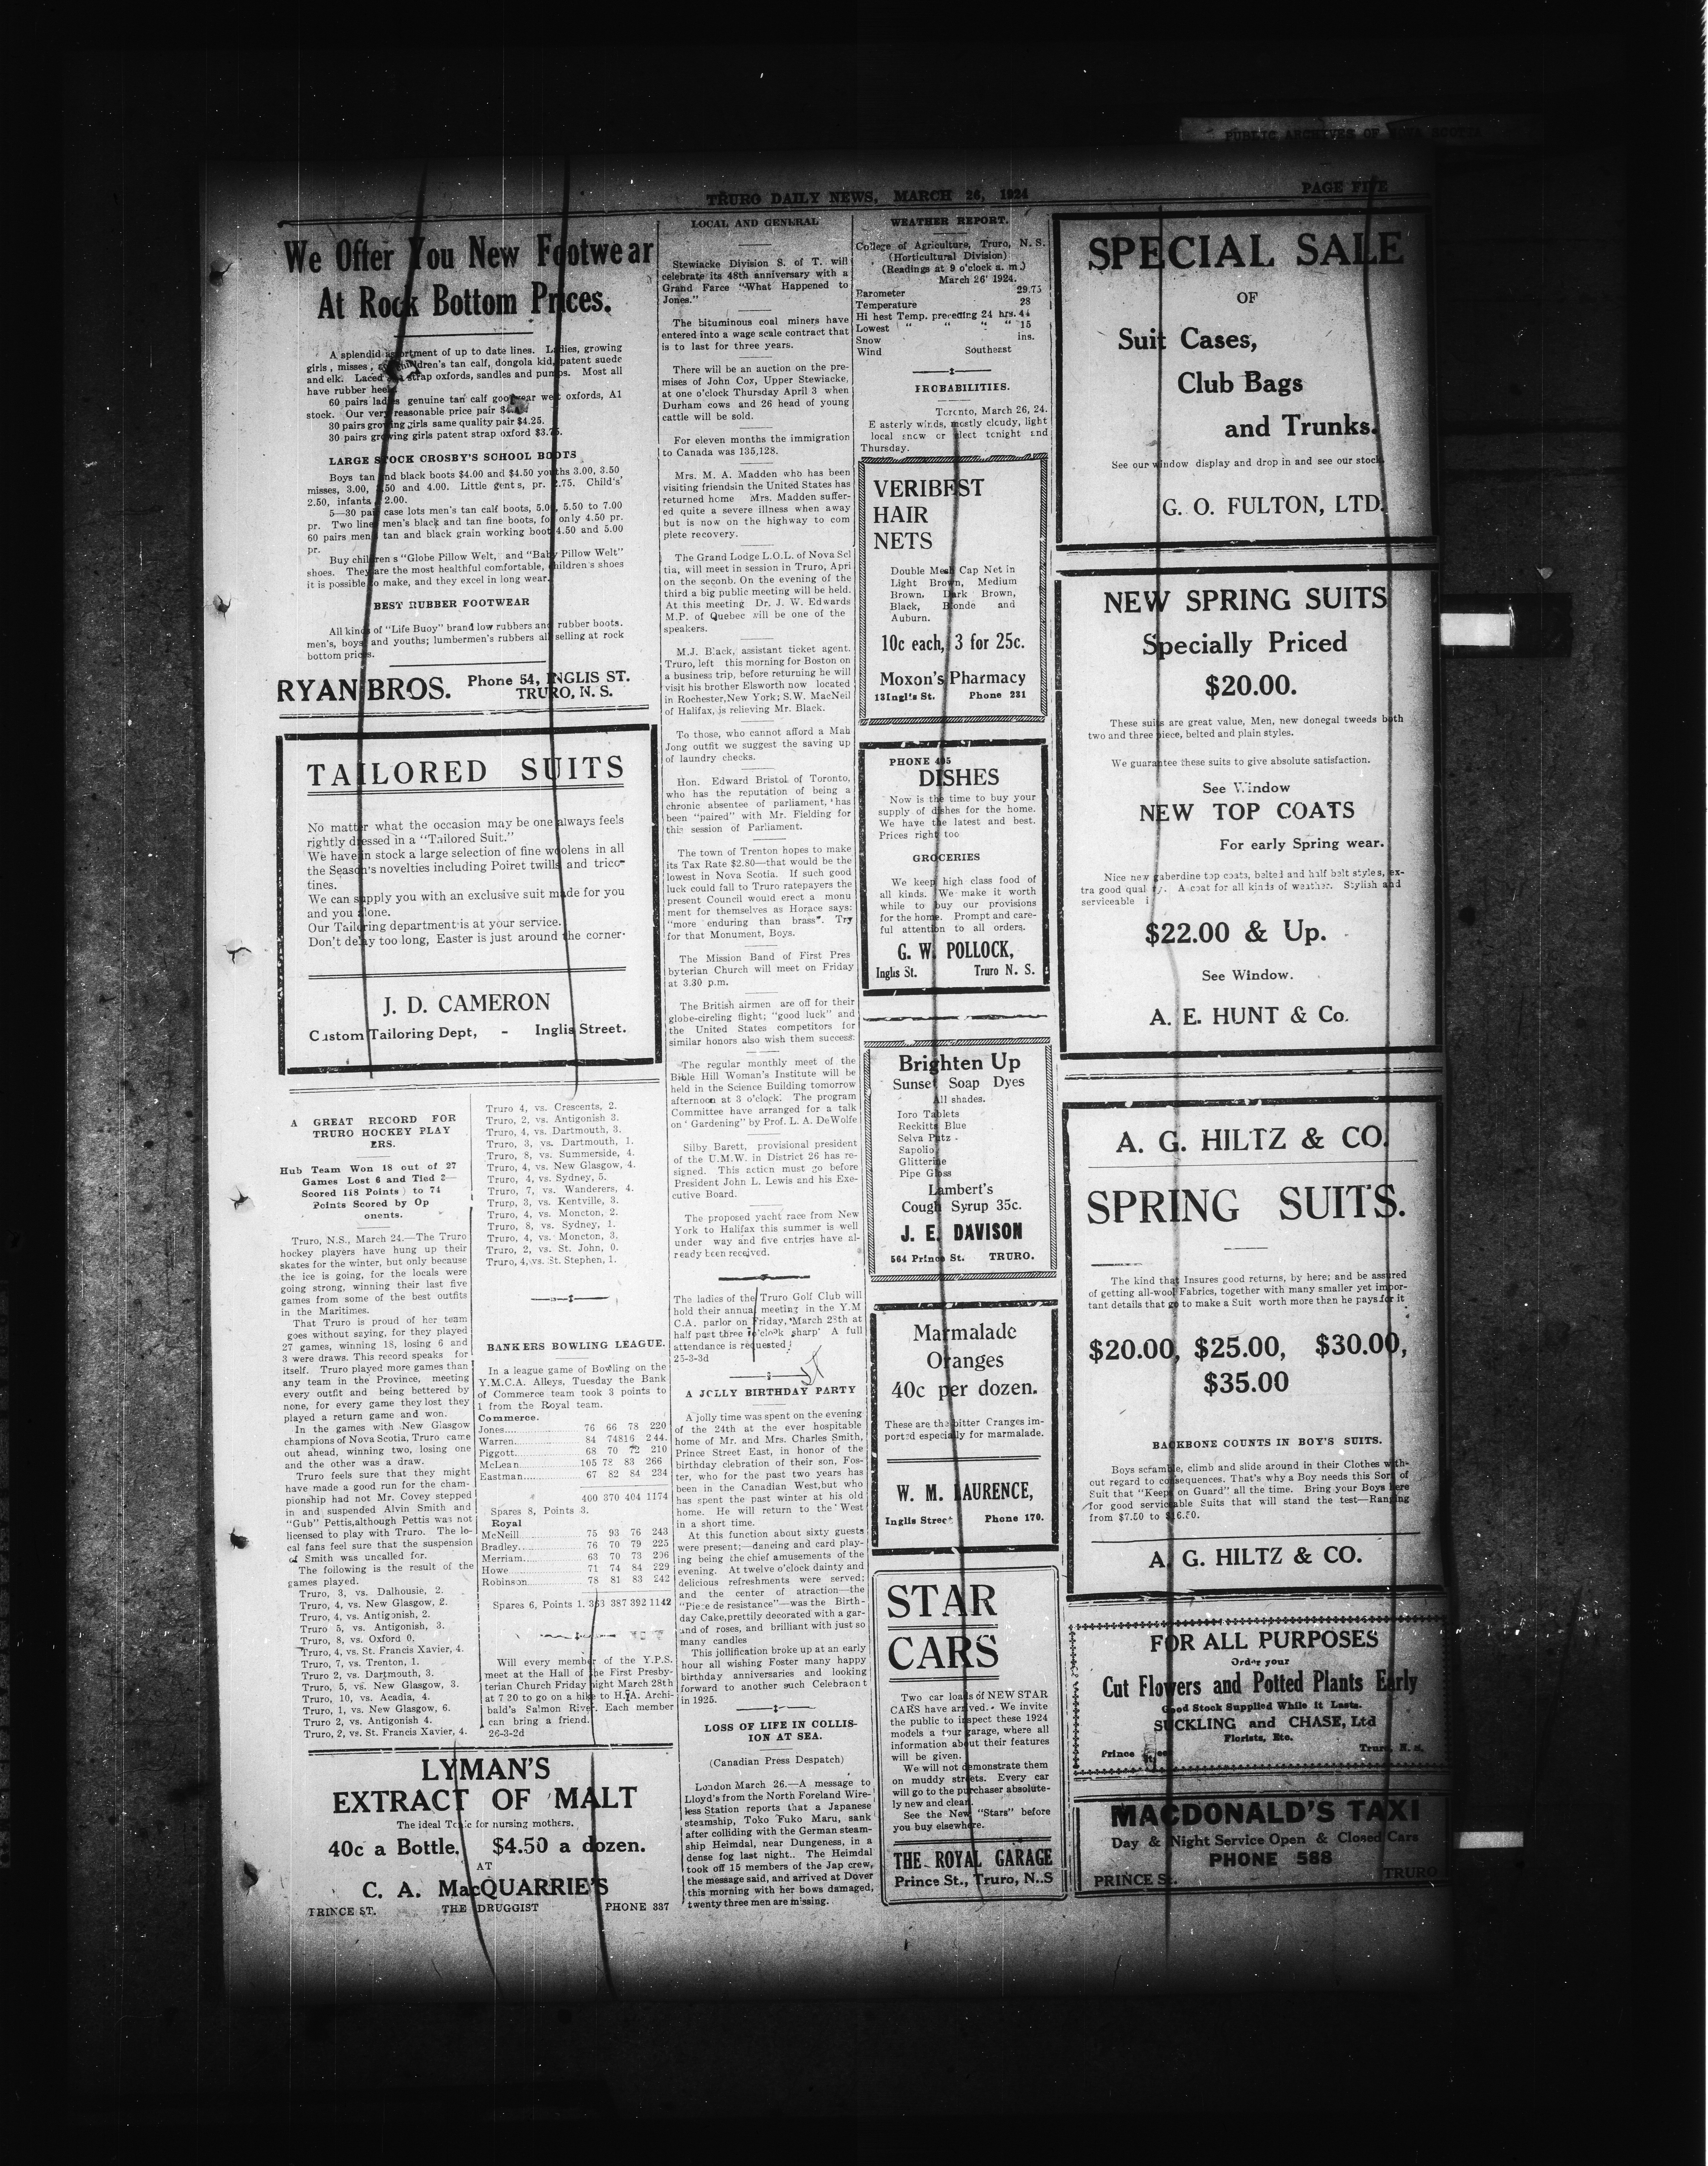 PUBLIC ARCHIVES OF NOVA SCOTIA
TRURO DAILY NEWS, MARCH 26, 1924
PAGE FIVE
We Offer You New Footwear
At Rock Bottom Prices.
A splendid assortment of up to date lines. Ladies, growing
girls, misses, children's tan calf, dongola kid, patent suede
and elk. Laced strap oxfords, sandles and pumps. Most all
have rubber heels.
60 pairs ladies genuine tan calf goodyear welt oxfords, A1
stock. Our very reasonable price pair
30 pairs growing girls same quality pair $4.25.
30 pairs growing girls patent strap oxford $3.75.
LARGE STOCK CROSBY'S SCHOOL BOOTS
Boys tan and black boots $4.00 and $4.50 youths 3.00, 3.50
misses, 3.00, 3.50 and 4.00. Little gents, pr. 2.75. Child's'
2.50, infants 2.00.
5—30 pair case lots men's tan calf boots, 5.00, 5.50 to 7.00
pr. Two lines men's black and tan fine boots, for only 4.50 pr.
60 pairs mens tan and black grain working boot 4.50 and 5.00
pr.
Buy children's "Globe Pillow Welt, and "Baby Pillow Welt"
shoes. They are the most healthful comfortable, children's shoes
it is possible to make, and they excel in long wear.
BEST RUBBER FOOTWEAR
All kinds of "Life Buoy" brand low rubbers and rubber boots.
men's, boys and youths; lumbermen's rubbers all selling at rock
bottom prices.
RYAN BROS. Phone 54, INGLIS ST.
TRURO, N. S.
TAILORED SUITS
No matter what the occasion may be one always feels
rightly dressed in a "Tailored Suit."
We have in stock a large selection of fine woolens in all
the Season's novelties including Poiret twills and trico-
tines.
We can supply you with an exclusive suit made for you
and you alone.
Our Tailoring department is at your service.
Don't delay too long, Easter is just around the corner.
J. D. CAMERON
Custom Tailoring Dept, - Inglis Street.
A GREAT RECORD FOR
TRURO HOCKEY PLAY
ERS.
Hub Team Won 18 out of 27
Games Lost 6 and Tied 2—
Scored 118 Points) to 74
Points Scored by Op
onents.
Truro, N.S., March 24.—The Truro
hockey players have hung up their
skates for the winter, but only because
the ice is going, for the locals were
going strong, winning their last five
games from some of the best outfits
in the Maritimes.
That Truro is proud of her team
goes without saying, for they played
27 games, winning 18, losing 6 and
3 were draws. This record speaks for
itself. Truro played more games than
any team in the Province, meeting
every outfit and being bettered by
none, for every game they lost they
played a return game and won.
In the games with New Glasgow
champions of Nova Scotia, Truro came
out ahead, winning two, losing one
and the other was a draw.
Truro feels sure that they might
have made a good run for the cham-
pionship had not Mr. Covey stepped
in and suspended Alvin Smith and
"Gub" Pettis,although Pettis was not
licensed to play with Truro. The lo-
cal fans feel sure that the suspension
of Smith was uncalled for.
The following is the result of the
games played.
Truro, 3, vs. Dalhousie, 2.
Truro, 4, vs. New Glasgow, 2.
Truro, 4, vs. Antigonish, 2.
Truro 5, vs. Antigonish, 3.
Truro, 8, vs. Oxford 0.
Truro, 4, vs. St. Francis Xavier, 4.
Truro, 7, vs. Trenton, 1.
Truro 2, vs. Dartmouth, 3.
Truro, 5, vs. New Glasgow, 3.
Truro, 10, vs. Acadia, 4.
Truro, 1, vs. New Glasgow, 6.
Truro 2, vs. Antigonish 4.
Truro, 2, vs. St. Francis Xavier, 4.
Truro 4, vs. Crescents, 2.
Truro, 2, vs. Antigonish 3.
Truro, 4, vs. Dartmouth, 3.
Truro, 3, vs. Dartmouth, 1.
Truro, 8, vs. Summerside, 4.
Truro, 4, vs. New Glasgow, 4.
Truro, 4, vs. Sydney, 5.
Truro, 7, vs. Wanderers, 4.
Truro, 3, vs. Kentville, 3.
Truro, 4, vs. Moncton, 2.
Truro, 8, vs. Sydney, 1.
Truro, 4, vs. Moncton, 3.
Truro, 2, vs. St. John, 0.
Truro, 4, vs. St. Stephen, 1.
BANKERS BOWLING LEAGUE.
In a league game of Bowling on the
Y.M.C.A. Alleys, Tuesday the Bank
of Commerce team took 3 points to
1 from the Royal team.
Commerce.
Jones.... 76 66 78 220
Warren.. 84 74816 244.
Piggott. 68 70 72 210
McLean 105 78 83 266
Eastman.. 67 82 84 234
400 370 404 1174
Spares 8, Points 3.
Royal
McNeill 75 93 76 243
Bradley.. 76 70 79 225
Merriam... 63 70 73 206
Howe 71 74 84 229
Robinson 78 81 83 242
Spares 6, Points 1. 363 387 392 1142
Will every member of the Y.P.S.
meet at the Hall of the First Presby-
terian Church Friday night March 28th
at 7 20 to go on a hike to H.A. Archi-
bald's Salmon River. Each member
can bring a friend.
26-3-2d
LYMAN'S
EXTRACT OF MALT
The ideal Tonic for nursing mothers.
40c a Bottle. $4.50 a dozen.
AT
C. A. MacQUARRIE'S
PRINCE ST. THE DRUGGIST PHONE 337
LOCAL AND GENERAL
Stewiacke Division S. of T. will
celebrate its 48th anniversary with a
Grand Farce "What Happened to
Jones."
The bituminous coal miners have
entered into a wage scale contract that
is to last for three years.
There will be an auction on the pre-
mises of John Cox, Upper Stewiacke,
at one o'clock Thursday April 3 when
Durham cows and 26 head of young
cattle will be sold.
For eleven months the immigration
to Canada was 135,128.
Mrs. M. A. Madden who has been
visiting friendsin the United States has
returned home Mrs. Madden suffer-
ed quite a severe illness when away
but is now on the highway to com
plete recovery.
The Grand Lodge L.O.L. of Nova Sci
tia, will meet in session in Truro, Apri
on the seconb. On the evening of the
third a big public meeting will be held.
At this meeting Dr. J. W. Edwards
M.P. of Quebec will be one of the
speakers.
M.J. Black, assistant ticket agent.
Truro, left this morning for Boston on
a business trip, before returning he will
visit his brother Elsworth now located
in Rochester,New York; S.W. MacNeil
of Halifax, is relieving Mr. Black.
To those, who cannot afford a Mah
Jong outfit we suggest the saving up
of laundry checks.
Hon. Edward Bristol of Toronto,
who has the reputation of being a
chronic absentee of parliament, has
been "paired" with Mr. Fielding for
this session of Parliament.
The town of Trenton hopes to make
its Tax Rate $2.80—that would be the
lowest in Nova Scotia. If such good
luck could fall to Truro ratepayers the
present Council would erect a monu
ment for themselves as Horace says:
"more enduring than brass". Try
for that Monument, Boys.
The Mission Band of First Pres
byterian Church will meet on Friday
at 3.30 p.m.
The British airmen are off for their
globe-circling flight; "good luck" and
the United States competitors for
similar honors also wish them success.
The regular monthly meet of the
Bible Hill Woman's Institute will be
held in the Science Building tomorrow
afternoon at 3 o'clock. The program
Committee have arranged for a talk
on ' Gardening" by Prof. L. A. DeWolfe
Silby Barett, provisional president
of the U.M.W. in District 26 has re-
signed. This action must go before
President John L. Lewis and his Exe-
cutive Board.
The proposed yacht race from New
York to Halifax this summer is well
under way and five entries have al-
ready been received.
The ladies of the Truro Golf Club will
hold their annual meeting in the Y.M
C.A. parlor on Friday, March 28th at
half past three o'clock sharp A full
attendance is requested
25-3-3d
A JOLLY BIRTHDAY PARTY
A jolly time was spent on the evening
of the 24th at the ever hospitable
home of Mr. and Mrs. Charles Smith,
Prince Street East, in honor of the
birthday clebration of their son, Fos-
ter, who for the past two years has
been in the Canadian West,but who
has spent the past winter at his old
home. He will return to the West
in a short time.
At this function about sixty guests
were present;—dancing and card play-
ing being the chief amusements of the
evening. At twelve o'clock dainty and
delicious refreshments were served;
and the center of atraction—the
"Piece de resistance"—was the Birth-
day Cake,prettily decorated with a gar-
land of roses, and brilliant with just so
many candles
This jollification broke up at an early
hour all wishing Foster many happy
birthday anniversaries and looking
forward to another such Celebraont
in 1925.
LOSS OF LIFE IN COLLIS-
ION AT SEA.
(Canadian Press Despatch)
London March 26.—A message to
Lloyd's from the North Foreland Wire-
less Station reports that a Japanese
steamship, Toko Fuko Maru, sank
after colliding with the German steam-
ship Heimdal, near Dungeness, in a
dense fog last night.. The Heimdal
took off 15 members of the Jap crew,
the message said, and arrived at Dover
this morning with her bows damaged,
twenty three men are missing.
WEATHER REPORT.
College of Agriculture, Truro, N. S.
(Horticultural Division)
(Readings at 9 o'clock a. m.)
March 26' 1924.
Barometer 29.75
Temperature 28
Hi hest Temp. preceding 24 hrs. 44
Lowest " " " " 15
Snow ins.
Wind Southeast
PROBABILITIES.
Toronto, March 26, 24.
Easterly winds, mostly cloudy, light
local snow or slect tonight and
Thursday.
VERIBEST
HAIR
NETS
Double Mesh Cap Net in
Light Brown, Medium
Brown, Dark Brown,
Black, Blonde and
Auburn.
10c each, 3 for 25c.
Moxon's Pharmacy
13Inglis St. Phone 231
PHONE 495
DISHES
Now is the time to buy your
supply of dishes for the home.
We have the latest and best.
Prices right too
GROCERIES
We keep high class food of
all kinds. We make it worth
while to buy our provisions
for the home. Prompt and care-
ful attention to all orders.
G. W. POLLOCK,
Inglis St. Truro N. S.
Brighten Up
Sunset Soap Dyes
All shades.
Ioro Tablets
Reckitts Blue
Selva Putz
Sapolio
Glitterine
Pipe Gloss
Lambert's
Cough Syrup 35c.
J. E. DAVISON
564 Prince St. TRURO.
Marmalade
Oranges
40c per dozen.
These are the bitter Oranges im-
ported especially for marmalade.
W. M. LAURENCE,
Inglis Street Phone 170.
STAR
CARS
Two car loads of NEW STAR
CARS have arrived. We invite
the public to inspect these 1924
models a tour garage, where all
information about their features
will be given.
We will not demonstrate them
on muddy streets. Every car
will go to the purchaser absolute-
ly new and clean.
See the New "Stars" before
you buy elsewhere.
THE ROYAL GARAGE
Prince St., Truro, N..S
SPECIAL SALE
OF
Suit Cases,
Club Bags
and Trunks.
See our window display and drop in and see our stock.
G. O. FULTON, LTD.
NEW SPRING SUITS
Specially Priced
$20.00.
These suits are great value, Men, new donegal tweeds both
two and three piece, belted and plain styles.
We guarantee these suits to give absolute satisfaction.
See Window
NEW TOP COATS
For early Spring wear.
Nice new gaberdine top coats, belted and half belt styles, ex-
tra good quality. A coat for all kinds of weather. Stylish and
serviceable
$22.00 & Up.
See Window.
A. E. HUNT & Co.
A. G. HILTZ & CO.
SPRING SUITS.
The kind that Insures good returns, by here; and be assured
of getting all-wool Fabrics, together with many smaller yet impor-
tant details that go to make a Suit worth more than he pays for it
$20.00, $25.00, $30.00,
$35.00
BACKBONE COUNTS IN BOY'S SUITS.
Boys scramble, climb and slide around in their Clothes with-
out regard to consequences. That's why a Boy needs this Sort of
Suit that "Keeps on Guard" all the time. Bring your Boys here
for good servicable Suits that will stand the test—Ranging
from $7.50 to $16.50.
A. G. HILTZ & CO.
FOR ALL PURPOSES
Order your
Cut Flowers and Potted Plants Early
Good Stock Supplied While it Lasts.
SUCKLING and CHASE, Ltd
Florists, Etc.
Prince Truro, N. S.
MACDONALD'S TAXI
Day & Night Service Open & Closed Cars
PHONE 588
PRINCE St. TRURO